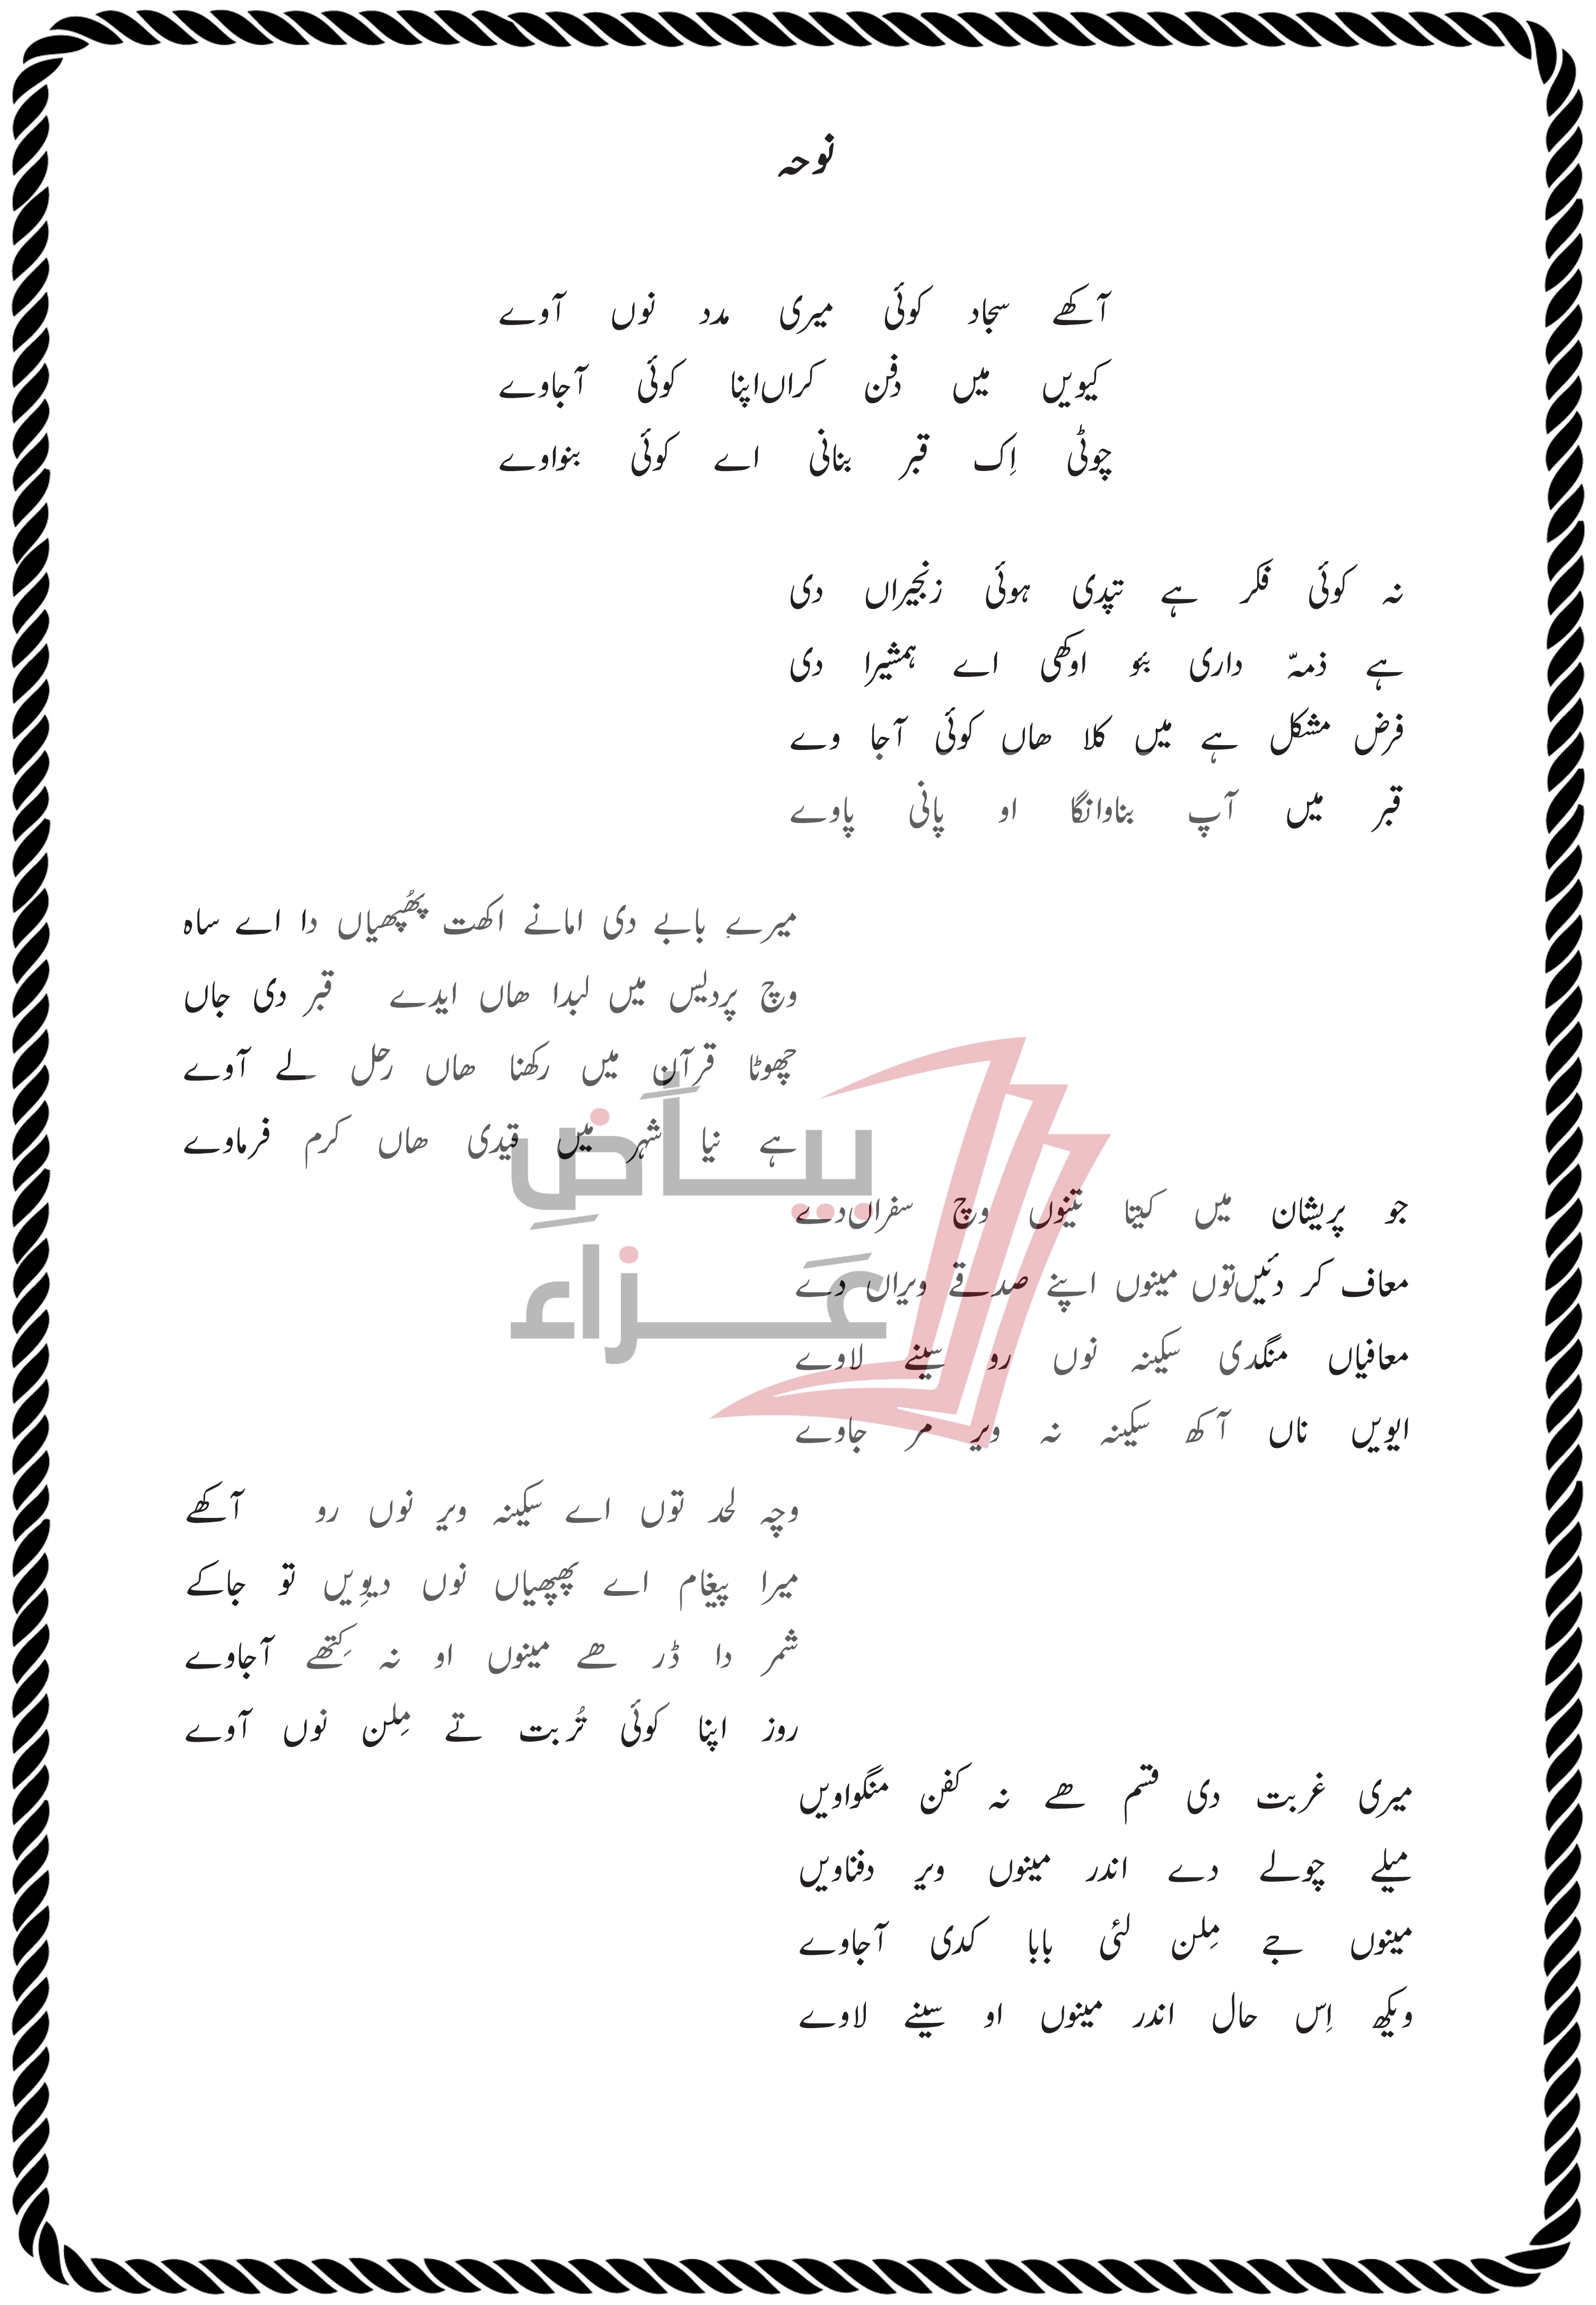 نوحہ
آکھے سجاد کوئی میری مدد نوں آوے
کیویں میں دفن کراں اپنا کوئی آجاوے
چوٹی اِک قبر بنانی اے کوئی بنواوے
نہ کوئی فکر ہے تپدی ہوئی زنجیراں دی
ہے ذمہّ داری بئو اوکھی اے ہمشیرا دی
فرض مشکل ہے میں کلا ھاں کوئی آجا وے
قبر میں آپ بناوانگا او پانی پاوے
میرے بابے دی امانے اکھت پھُپھیاں دا اے ساہ
وچ پردیس میں لبدا ھاں ایدے قبر دی جاں
چھوٹا قرآن میں رکھنا ھاں رحل لے آوے
ہے نیا شہر میں قیدی ھاں کرم فرماوے
جو پریشان میں کیتا تینوں وچ سفراں دے
معاف کر دئیں توں مینوں اپنے صدقے ویراں دے
معافیاں منگدی سکینہ نوں رو سینے لاوے
ایویں ناں آکھ سکینہ نہ ویر مر جاوے
وچہ لحد توں اے سکینہ ویر نوں رو آکھے
میرا پیغام اے پھپھیاں نوں دیوِیں تو جاکے
شمر دا ڈر ھے مینوں او نہ کِتھے آجاوے
روز اپنا کوئی تُربت تے مِلن نوں آوے
میری غربت دی قسم ھے نہ کفن منگواویں
میلے چولے دے اندر مینوں ویر دفناویں
مینوں جے مِلن لئی بابا کدی آجاوے
ویکھ اِس حال اندر مینوں او سینے لاوے
بیاَضِ
عَزاء